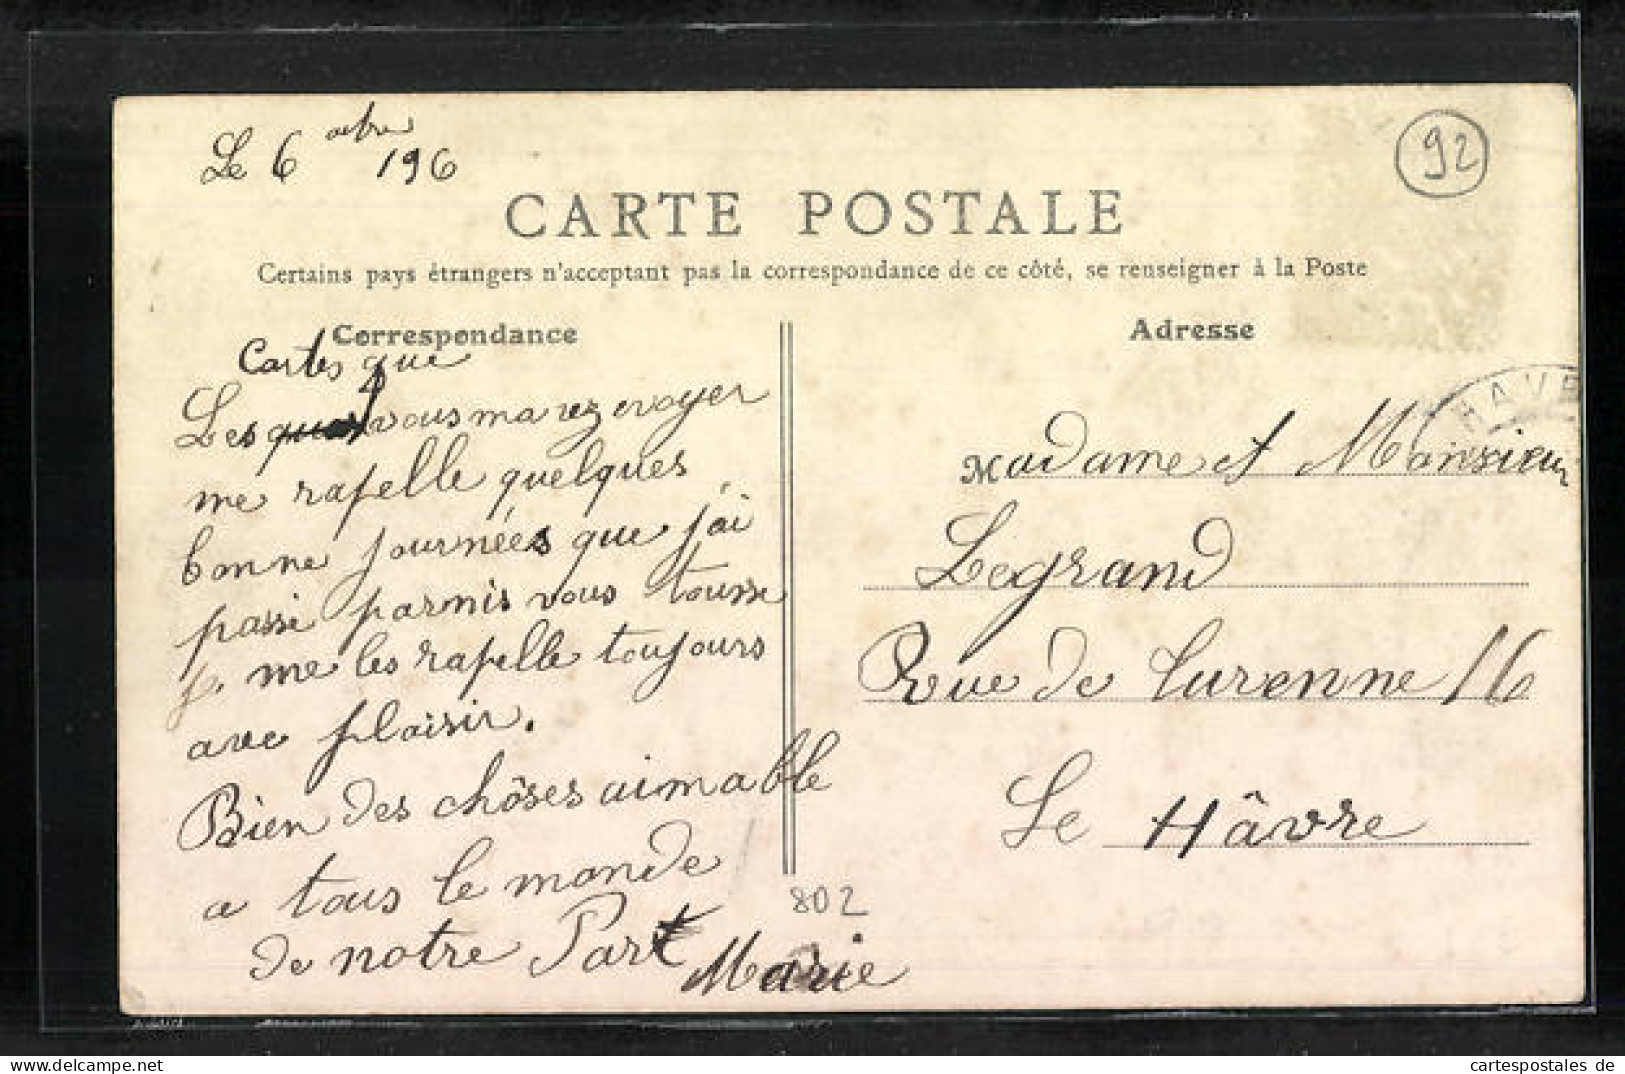 Le 6 octbre 196
92
CARTE POSTALE
Certains pays étrangers n'acceptant pas la correspondance de ce côté, se renseigner à la Poste
Correspondance
Cartes que
Les vous mavez evoyer
me rapelle quelques
bonne journées que j'ai
passé parmis vous tousse
j. me les rapelle toujours
avec plaisir.
Bien des chôses aimable
a tous le monde
de notre Part
Marie
802
Adresse
HAVRE
Madame et Monsieur
Legrand
Rue de Turenne 16
Le Hâvre
cartespostales de